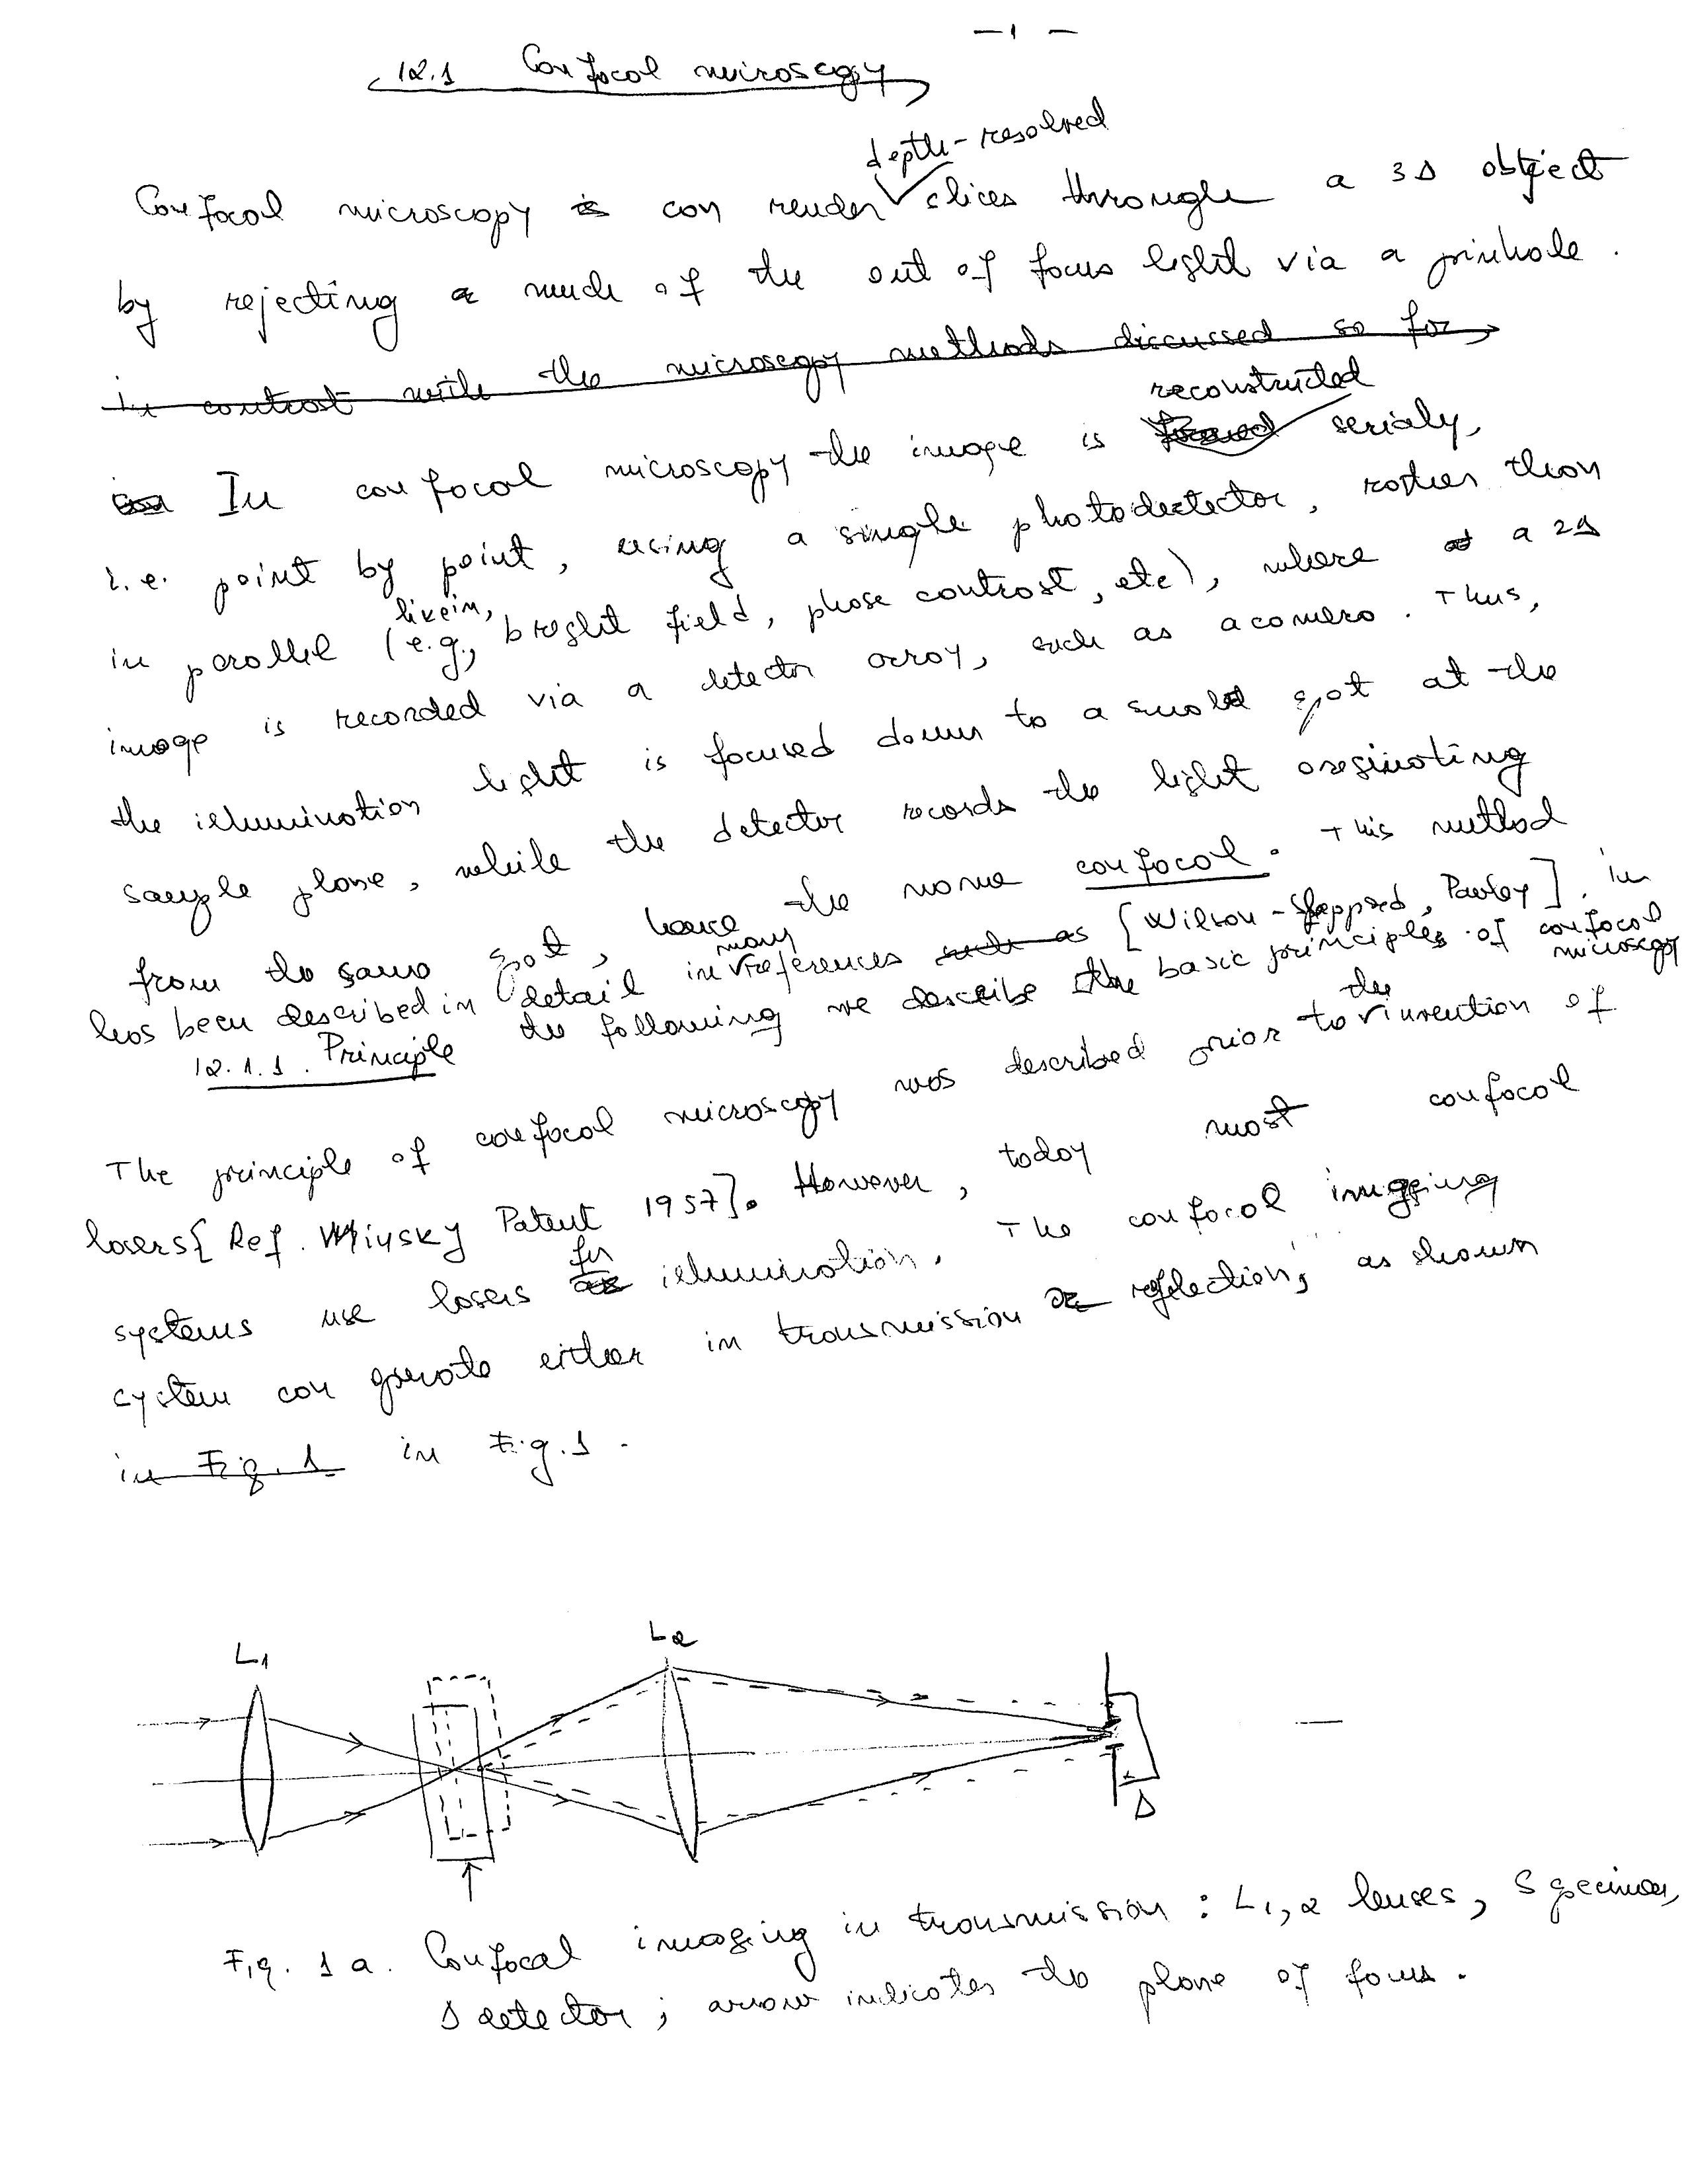 - 1 -
12.1 Confocal miroscopy
depth-resolved
Confocal microscopy is can render slices through a 3D object
by rejecting a much of the out of focus light via a pinhole.
In contrast with the microscopy methods discussed so far
reconstructed
In confocal microscopy the image is serialy,
i.e. point by point, using a single photodectector, rather than
in parallel (e.g., bright field, phase contrast, etc), where a 2D
image is recorded via a detector array, such as a camera. Thus,
the illumination light is focused down to a small spot at the
sample plane, while the detector records the light originating
from the same spot, hence the name confocal. This method
has been described in detail in many references such as [Wilson-Sheppard, Pawley]. In
the following we describe the basic principles of confocal microscopy
12.1.1. Principle
The principle of confocal microscopy was described prior to the invention of
lasers [Ref. Minsky Patent 1957]. However, today most confocal
systems use lasers for illumination. The confocal imaging
system can operate either in transmission or reflection, as shown
in Fig. 1 in Fig. 1.
L1
L2
D
Fig. 1 a. Confocal imaging in transmission: L1,2 lenses, S specimen,
D detector; arrow indicates the plane of focus.